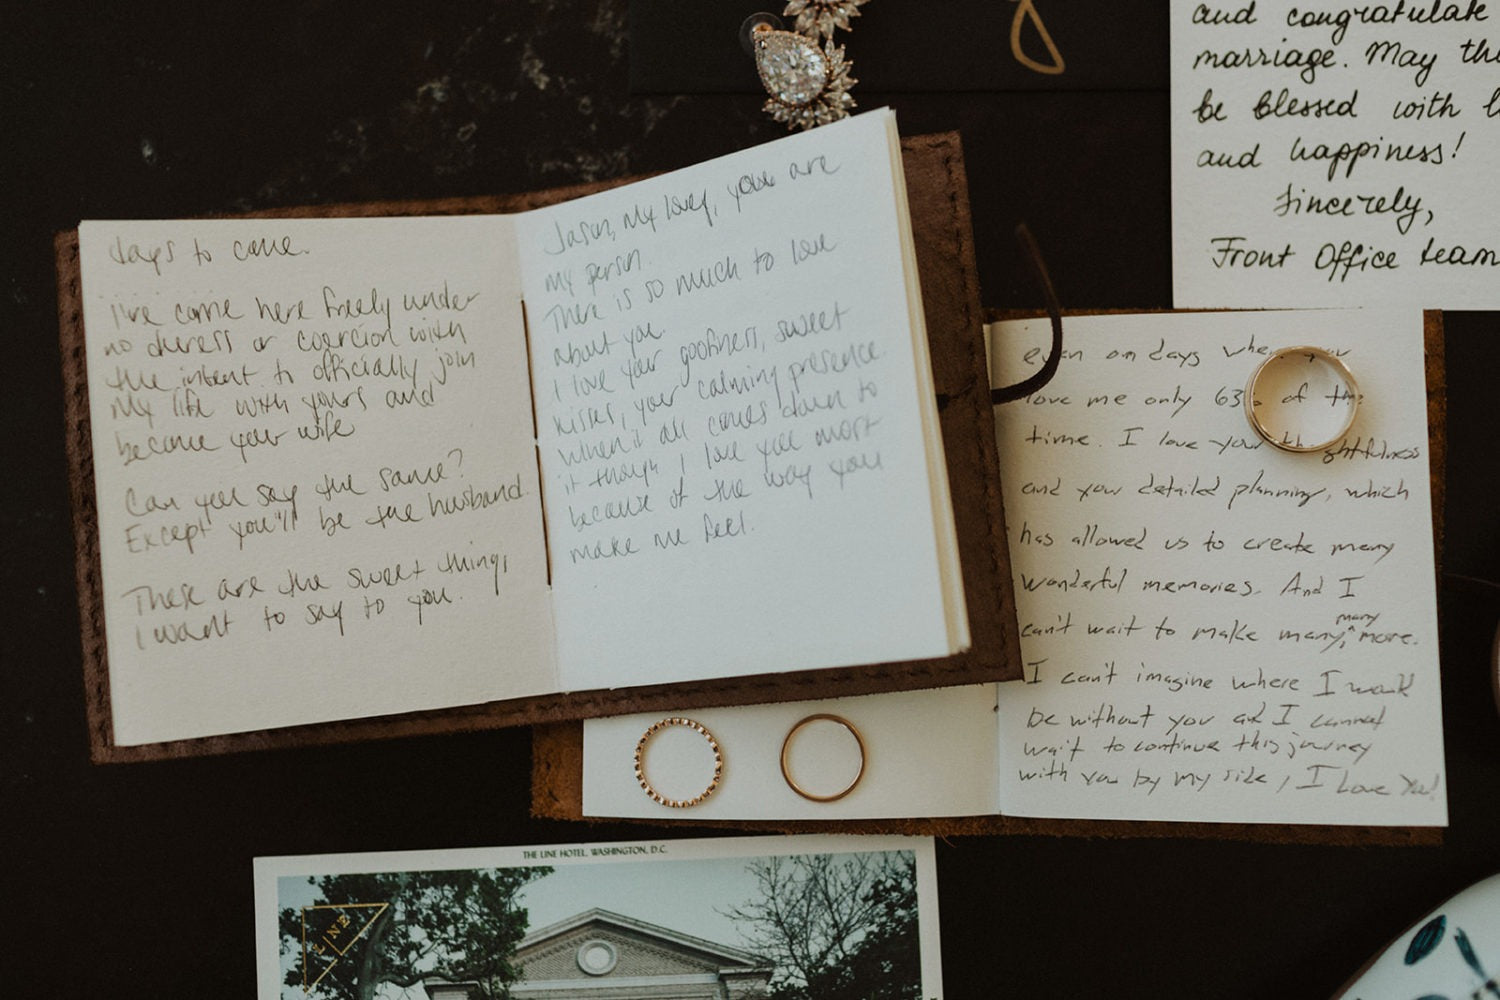 days to come.
I've come here freely under
no duress or coercion with
the intent to officially join
my life with yours and
become your wife
Can you say the same?
Except you'll be the husband.
These are the sweet things
I want to say to you.
Jason, my lovey, you are
my person.
There is so much to love
about you.
I love your goofiness, sweet
kisses, your calming presence.
When it all comes down to
it though I love you most
because of the way you
make me feel.
and congratulate
marriage. May
be blessed with
and happiness!
Sincerely,
Front Office team
even on days when
love me only 63% of the
time. I love your
and your detailed planning, which
has allowed us to create many
wonderful memories. And I
can't wait to make many, many more.
I can't imagine where I would
be without you and I cannot
wait to continue this journey
with you by my side, I Love You!
THE LINE HOTEL, WASHINGTON, D.C.
LINE